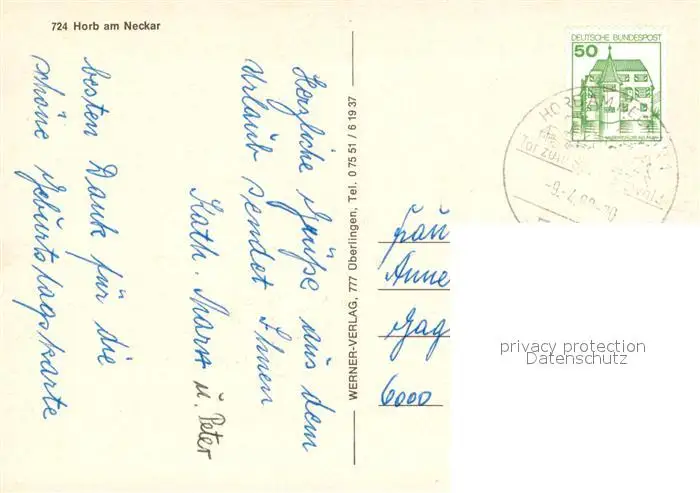 724 Horb am Neckar
Herzliche Grüße aus dem
Urlaub sendet Ihnen
Kath. Marx u. Peter
besten Dank für die
schöne Geburtstagskarte
WERNER-VERLAG, 777 Überlingen, Tel. 0 75 51 / 6 19 37
DEUTSCHE BUNDESPOST
50
HORB AM NECK
Tor zum
Frau
Anne
Hag
6000
privacy protection
Datenschutz